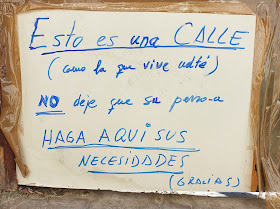 Esto es una CALLE
(como la que vive usté)
NO deje que su perro-a
HAGA AQUI SUS
NECESIDADES
(GRACIAS)